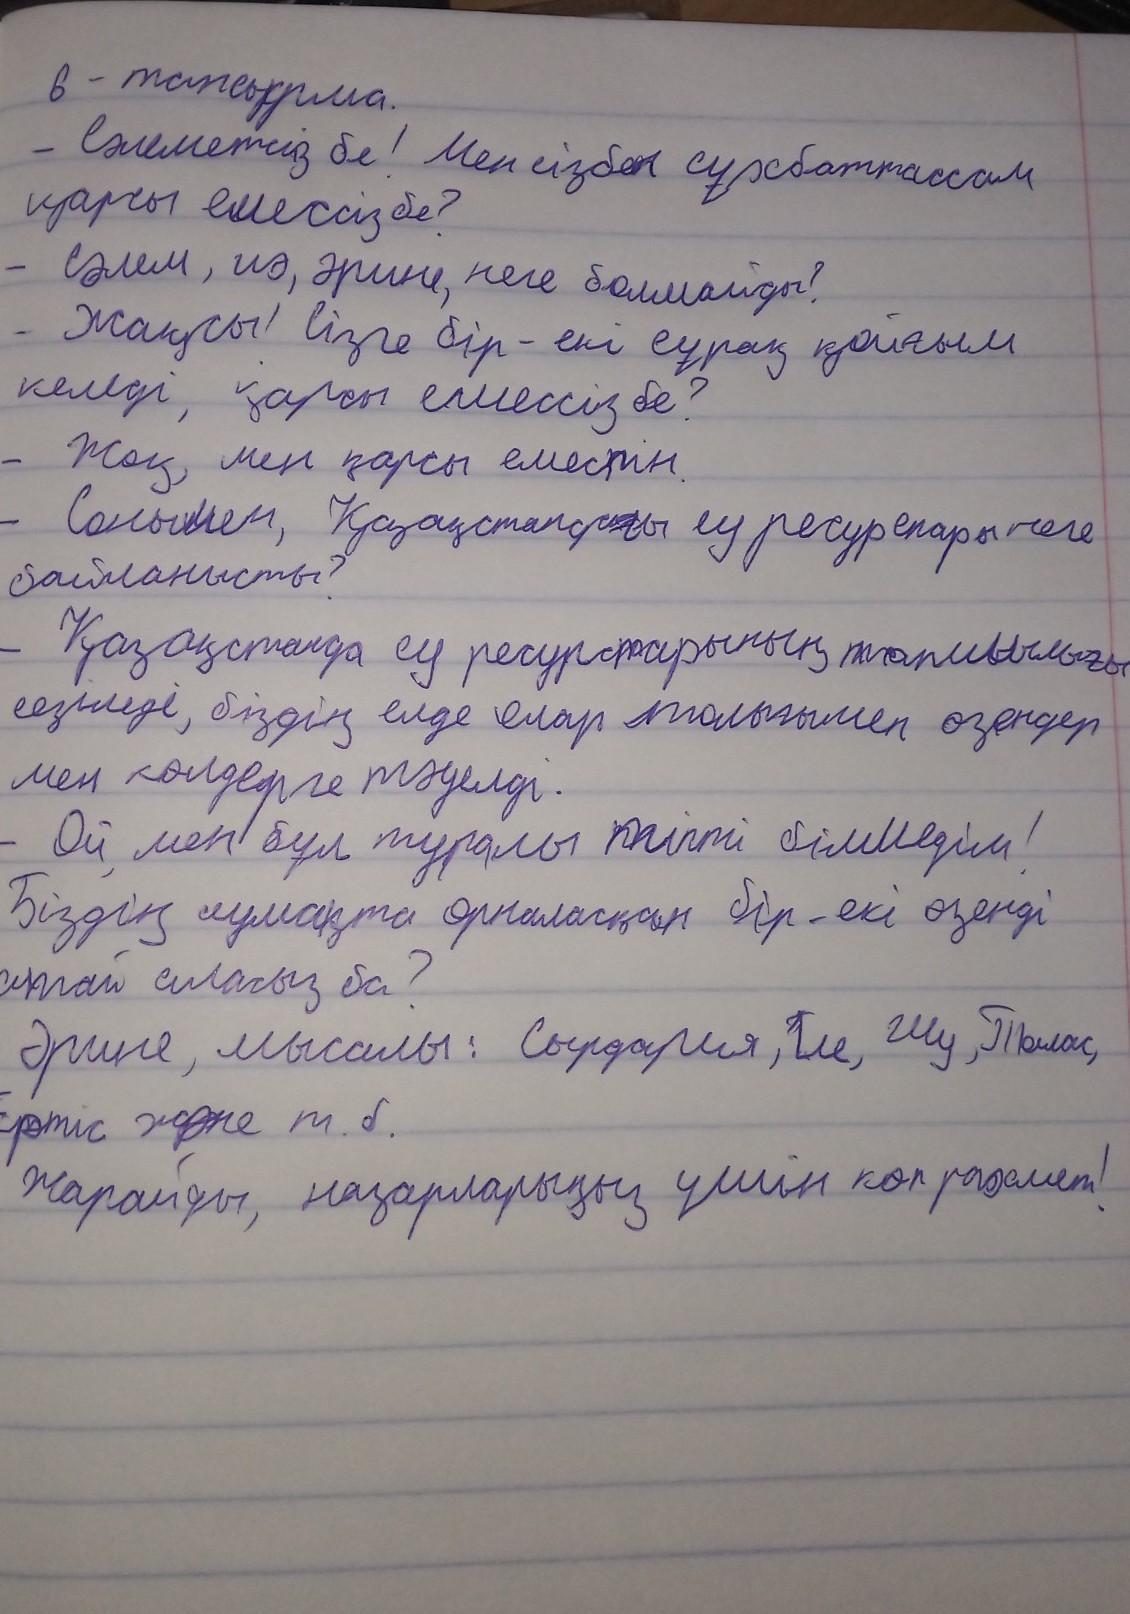 6 - тапсырма.
- Сәлеметсіз бе! Мен сізбен сұхбаттассам
қарсы емессіз бе?
- Сәлем, иә, әрине, неге болмайды?
- Жақсы! Сізге бір-екі сұрақ қойғым
келеді, қарсы емессіз бе?
- Жоқ, мен қарсы еместін.
- Сонымен, Қазақстандағы су ресурспары неге
байланысты?
- Қазақстанда су ресурстарының тапшылығы
сезіледі, біздің елде олар толығымен өзендер
мен көлдерге тәуелді.
- Ой, мен бұл туралы тіпті білмедім!
Біздің аумақта орналасқан бір-екі өзенді
атай аласыз ба?
Әрине, мысалы: Сырдария, Іле, Шу, Талас,
Ертіс және т.б.
Жарайды, назарларыңыз үшін көп рахмет!